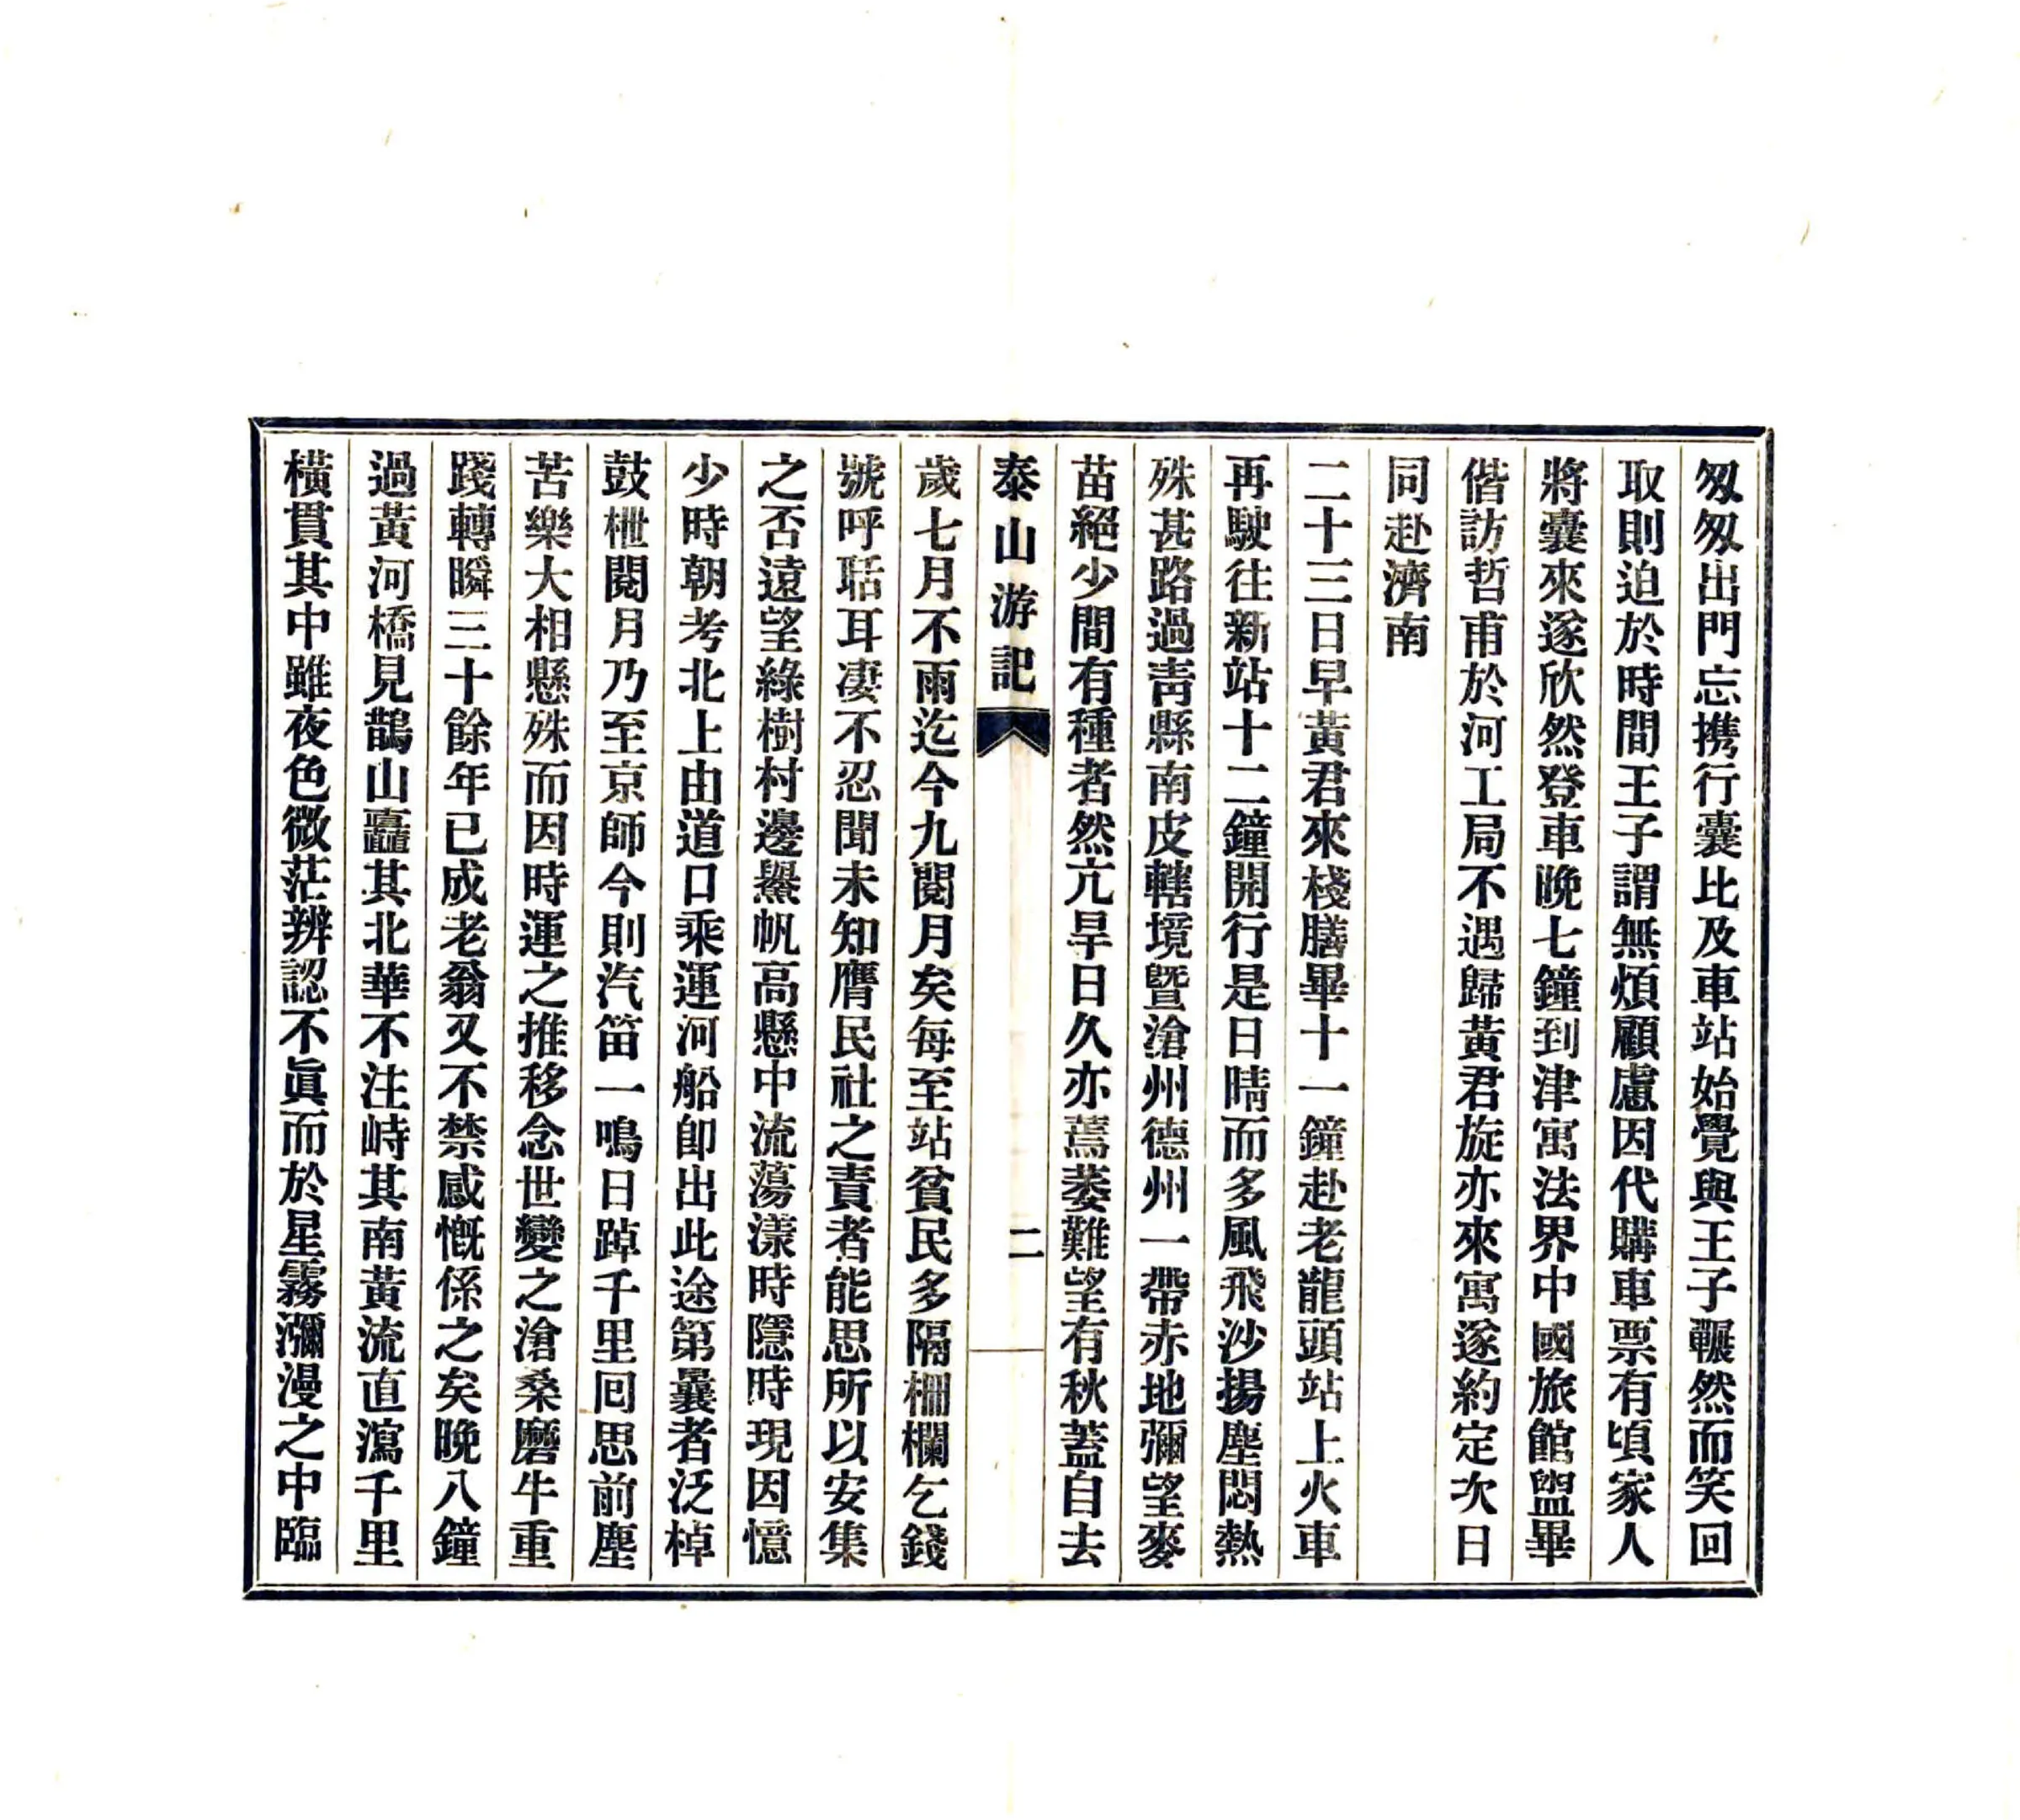 匆匆出門忘携行囊比及車站始覺與王子囅然而笑回
取則迫於時間王子謂無煩顧慮因代購車票有頃家人
將囊來遂欣然登車晚七鐘到津寓法界中國旅館盥畢
偕訪哲甫於河工局不遇歸黃君旋亦來寓遂約定次日
同赴濟南
二十三日早黃君來棧膳畢十一鐘赴老龍頭站上火車
再駛往新站十二鐘開行是日晴而多風飛沙揚塵悶熱
殊甚路過靑縣南皮轄境暨滄州德州一帶赤地彌望麥
苗絕少間有種者然亢旱日久亦蔫萎難望有秋蓋自去
泰山游記
二
歲七月不雨迄今九閱月矣每至站貧民多隔柵欄乞錢
號呼聒耳凄不忍聞未知膺民社之責者能思所以安集
之否遠望綠樹村邊㬠帆高懸中流蕩漾時隱時現因憶
少時朝考北上由道口乘運河船卽出此途第曩者泛棹
鼓枻閱月乃至京師今則汽笛一鳴日踔千里囘思前塵
苦樂大相懸殊而因時運之推移念世變之滄桑磨牛重
踐轉瞬三十餘年已成老翁又不禁感慨係之矣晚八鐘
過黃河橋見鵲山矗其北華不注峙其南黃流直瀉千里
橫貫其中雖夜色微茫辨認不眞而於星霧瀰漫之中臨